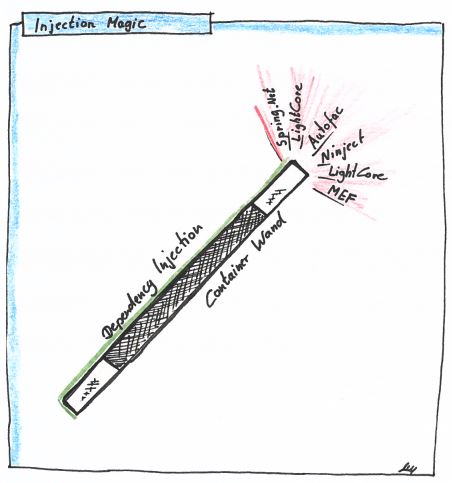 Injection Magic
Spring.Net
LightCore
Autofac
Ninject
LightCore
MEF
Dependency Injection
Container Wand